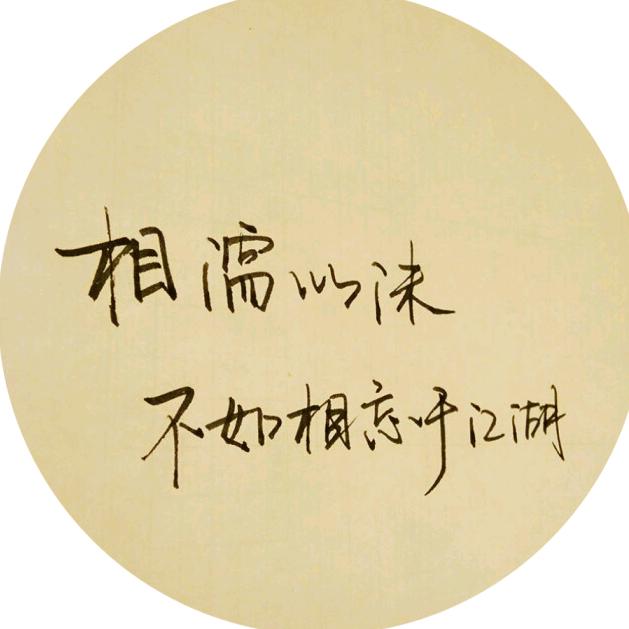 相濡以沫
不如相忘呼江湖